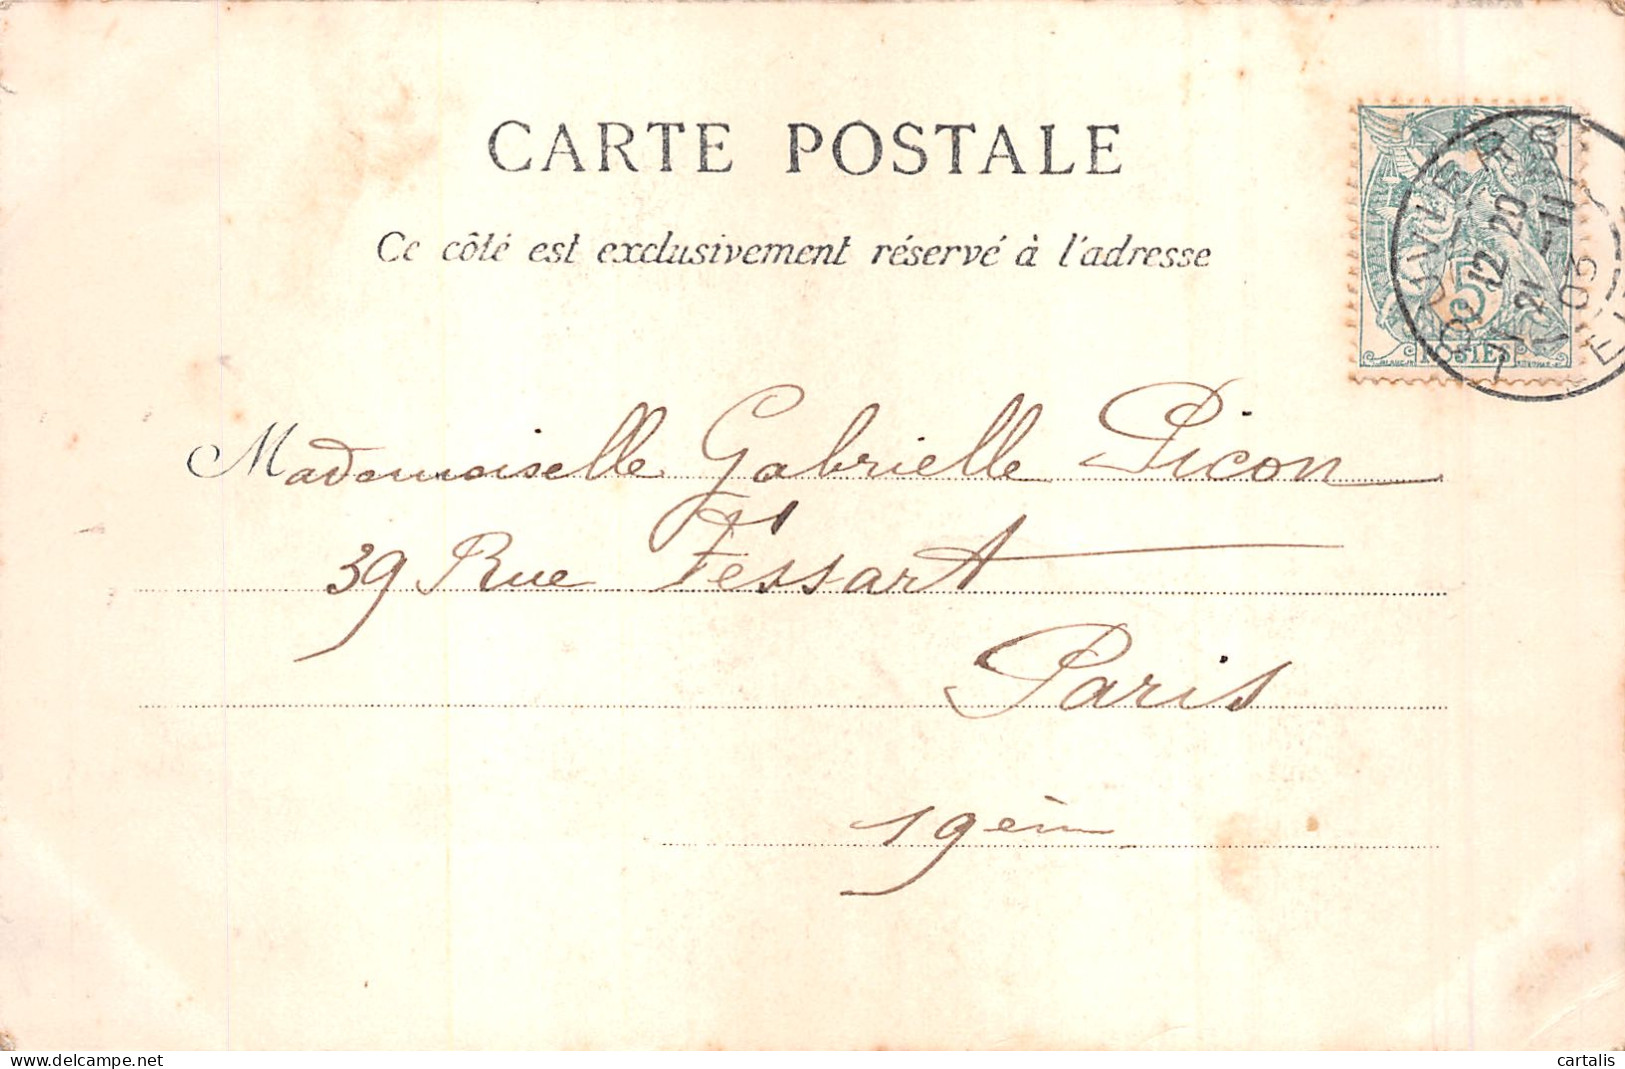 CARTE POSTALE
Ce côté est exclusivement réservé à l'adresse
12 20
21 -11
03
5
POSTES
Mademoiselle Gabrielle Picon
39 Rue Féssart
Paris
19èm
delcampe.net
cartalis